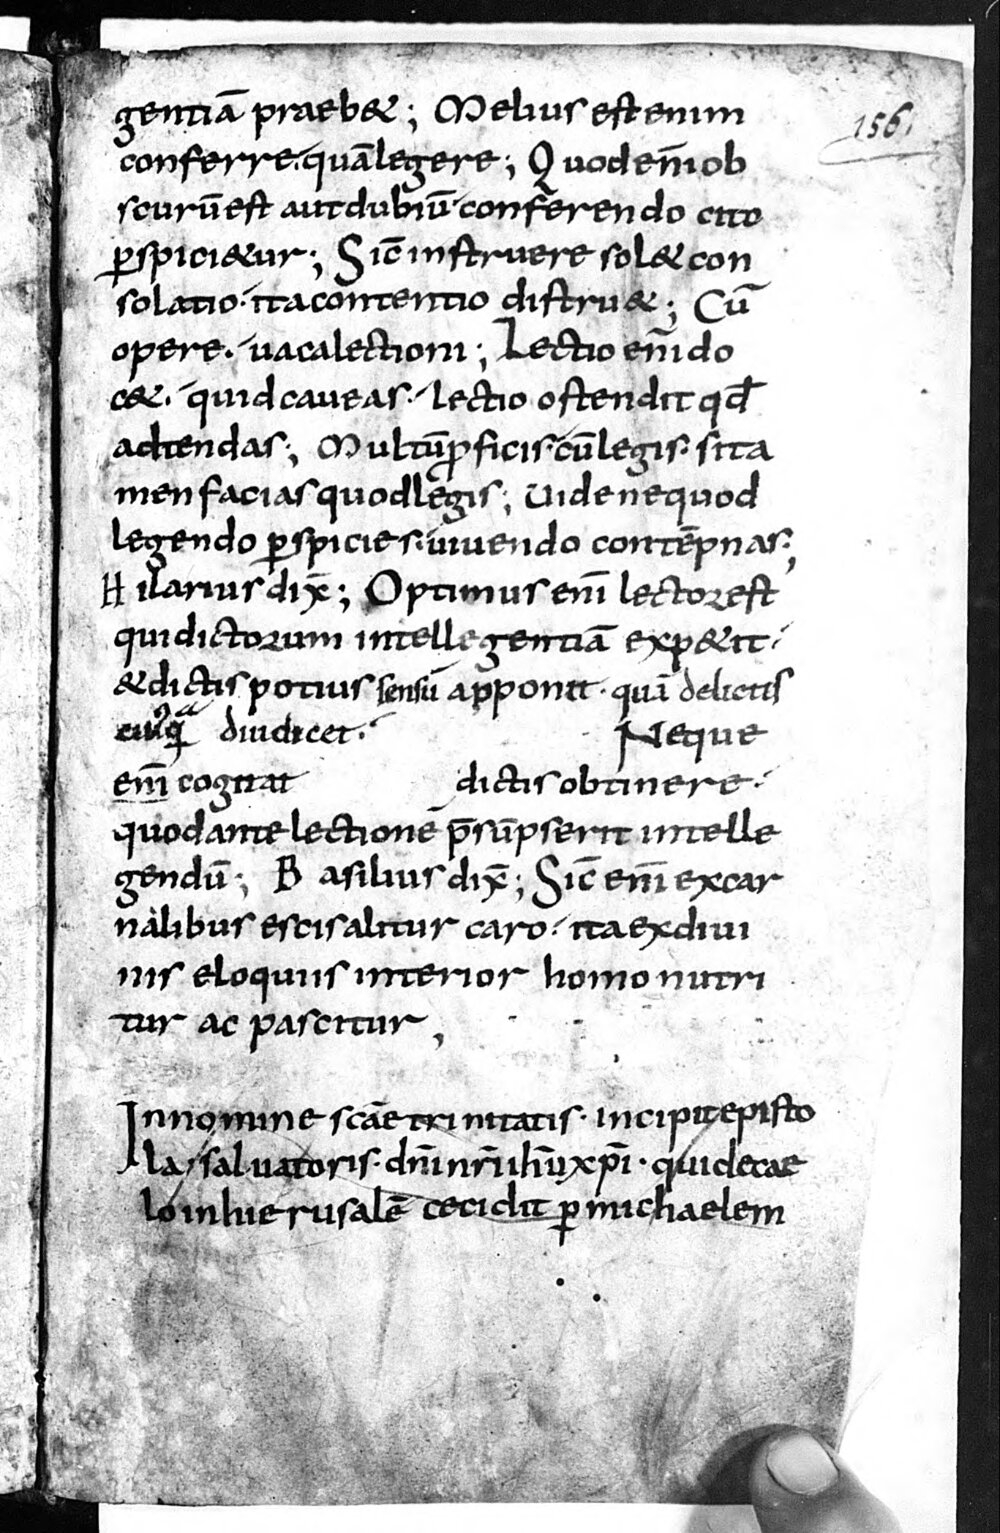 gentiā praeb&; Melius est enim
156
conferre. quālegere; Quodenīob
scurūest autdubiū conferendo cito
p̱spici&ur; Sic̄ instruere sol& con
solatio. itacontentio distru&; Cū
opere. uacalectioni; Lectio enīdo
c&. quidcaueas. lectio ostendit qd̄
adtendas; Multūp̱ficis. cūlegis. sita
men facias quodlegis; Uidenequod
legendo p̱spicies. uiuendo contēpnas;
Hilarius dix̄; Optimus enī lectorest
quidictorum intellegentiā exp&it.
&dictis potius sensū apponit. quā delictis
diudicet. Neque
enī cogitat dictis obtinere.
quodante lectionē p̄sūpserit intelle
gendū; Basilius dix̄; Sic̄ enī excar
nalibus escisalitur caro. itaexdiui
nis eloquiis interior homo nutri
tur ac pascitur,
Innomine scāe trinitatis. incipitepisto
la saluatoris. dn̄i nr̄i ih̄u xp̄i. quidecae
loinhierusalē cecidit p̱ michaelem